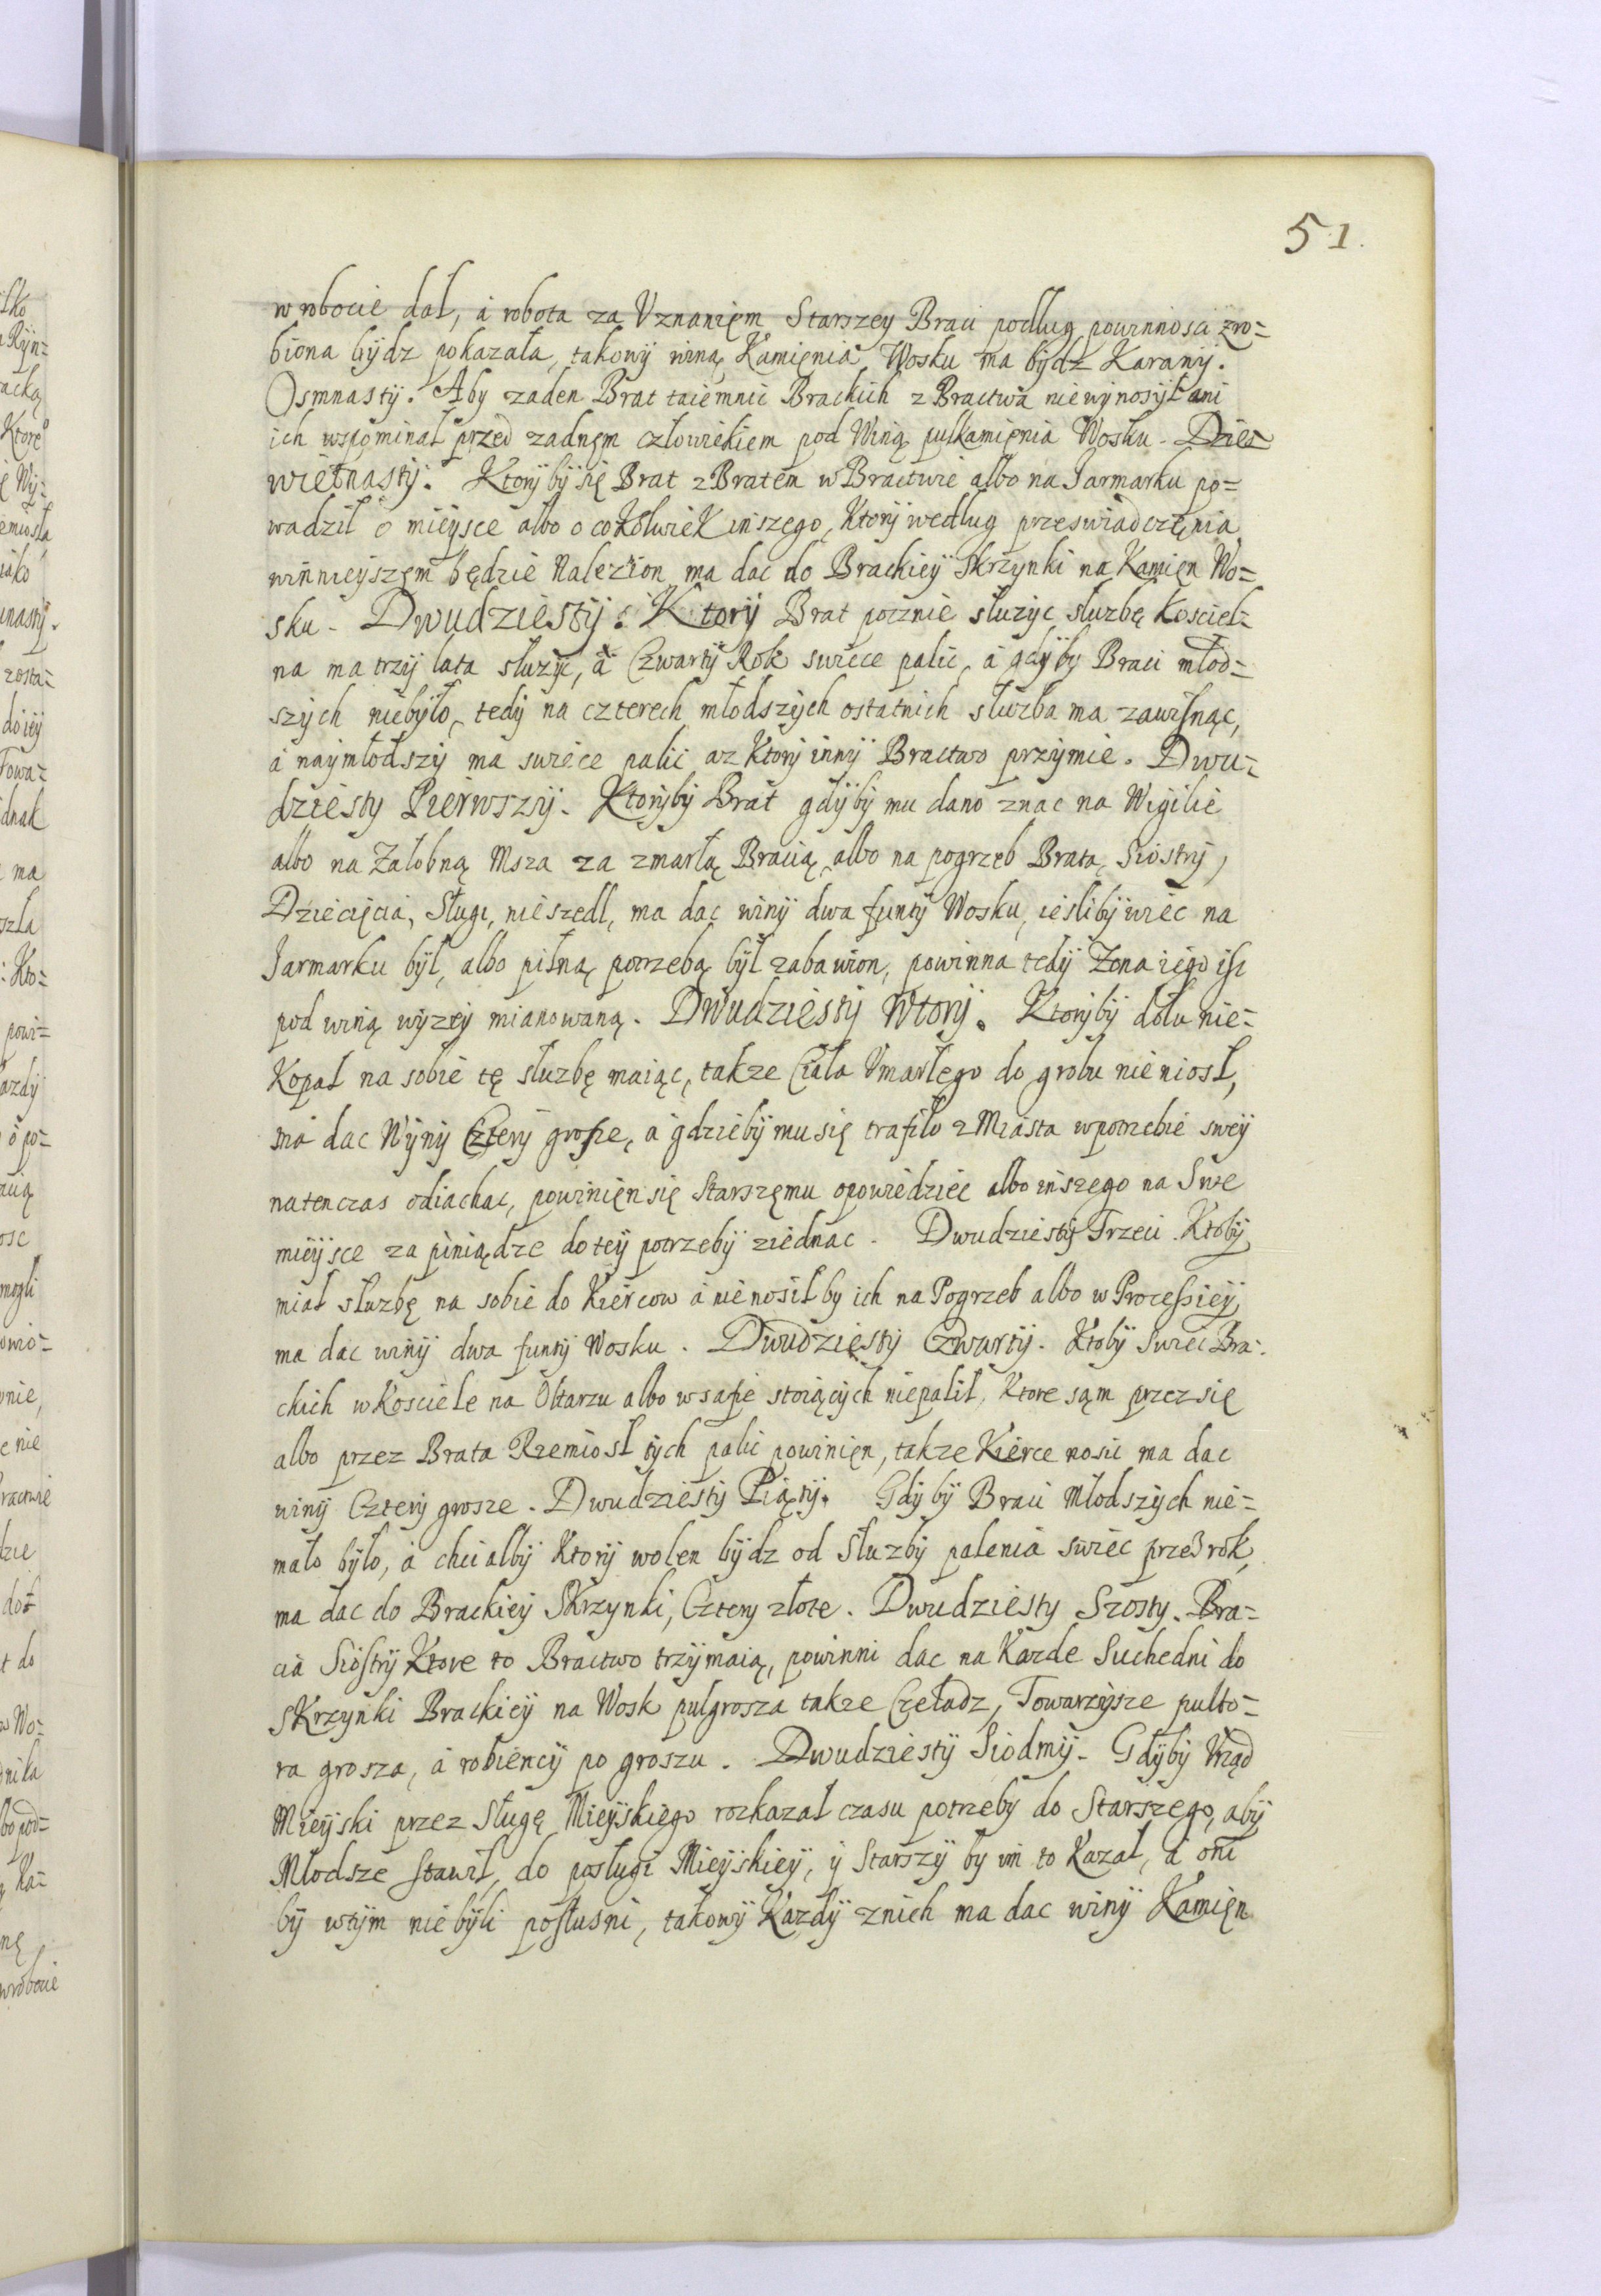 51.
w robocie dał, á robota za Vznanięm Starszey Braci podług powinnosci zro=
biona bydz pokazała, takowÿ winą Kamięnia Wosku ma bÿdz Karanÿ.
Osmnastÿ. Aby zaden Brat taiemnic Brackich z Bractwa niewÿnosÿł ani
ich wspominał przed zadnęm człowiekiem pod Winą pułkamięnia Wosku. Dzie=
więtnastÿ. Ktorÿ bÿ się Brat z Bratem w Bractwie albo na Jarmarku po=
wadził o mieÿsce albo o cokolwiek inszego, Ktorÿ według przeswiadczęnia
winnieyszęm będzie Nalezion ma dac do Brackieÿ Skrzynki na Kamięn Wo=
sku. Dwudziestÿ. Ktorÿ Brat pocznie służyc służbę Kosciel=
na ma trzÿ lata służÿc, á Czwartÿ Rok swiece palic, á gdÿbÿ Braci młod=
szÿch niebÿło, tedÿ na czterech młodszÿch ostatnich służba ma zawisnąc,
á naÿmłodszÿ ma swiece palic az Ktorÿ innÿ Bractwo przÿmie. Dwu=
dziesty Pierwszÿ. Ktorÿbÿ Brat gdÿbÿ mu dano znac na Wigilie
albo na Załobną Msza za zmarłą Bracią, albo na pogrzeb Brata, Siostrÿ,
Dziecięcia, Sługi, nieszedl, ma dac winÿ dwa funtÿ Wosku, ieslibÿ wiec na
Jarmarku bÿł, albo pilną potrzebą bÿł zabawion, powinna tedÿ Zona iego isc
pod winą wÿzeÿ mianowaną. Dwudziestÿ Wtorÿ. Ktorÿbÿ dołu nie=
Kopał na sobie tę słuzbę maiąc, takze Ciała Vmarłego do grobu nieniosł,
má dac Wÿnÿ Czterÿ grosze, á gdziebÿ mu się trafiło z Miasta w potrzebie sweÿ
natenczas odiachac, powinięn się Starszęmu opowiedziec albo inszego na Swe
mieÿsce za pieniądze do teÿ potrzebÿ ziednac. Dwudziestÿ Trzeci. Ktobÿ
miał słuzbę na sobie do Kiercow á nie nosił by ich na Pogrzeb albo w Processieÿ
ma dac winÿ dwa funtÿ Wosku. Dwudziestÿ Czwartÿ. Ktobÿ Swiec Bra=
ckich w Kosciele na Ołtarzu albo w safie stoiącÿch niepalił, Ktore sąm przez się
albo przez Brata Rzemiosł tÿch palic powinięn, takze Kierce nosic ma dac
winÿ Czterÿ grosze. Dwudziestÿ Piątÿ. Gdÿ bÿ Braci Młodszÿch nie=
mało bÿło, á chciałbÿ Ktorÿ wolen bÿdz od Słuzbÿ palenia swiec przed rok,
ma dac do Brackieÿ Skrzynki, Cztery złote. Dwudziesty Szosty. Bra=
cia Siostrÿ Ktore to Bractwo trzÿmaią, powinni dac na Kazde Suchedni do
Skrzynki Brackieÿ na Wosk pułgrosza takze Czeladz, Towarzÿsze pułto=
ra grosza, á robiencÿ po groszu. Dwudziestÿ Siodmÿ. Gdÿbÿ Vrząd
Mieÿski przez Sługę Mieÿskiego rozkazał czasu potrzeby do Starszego, abÿ
Młodsze stawił, do posługi Mieÿskieÿ, ÿ Starszÿ by im to Kazał, á oni
bÿ wtÿm niebÿli posłusni, takowÿ Kazdÿ znich ma dac winÿ Kamięn